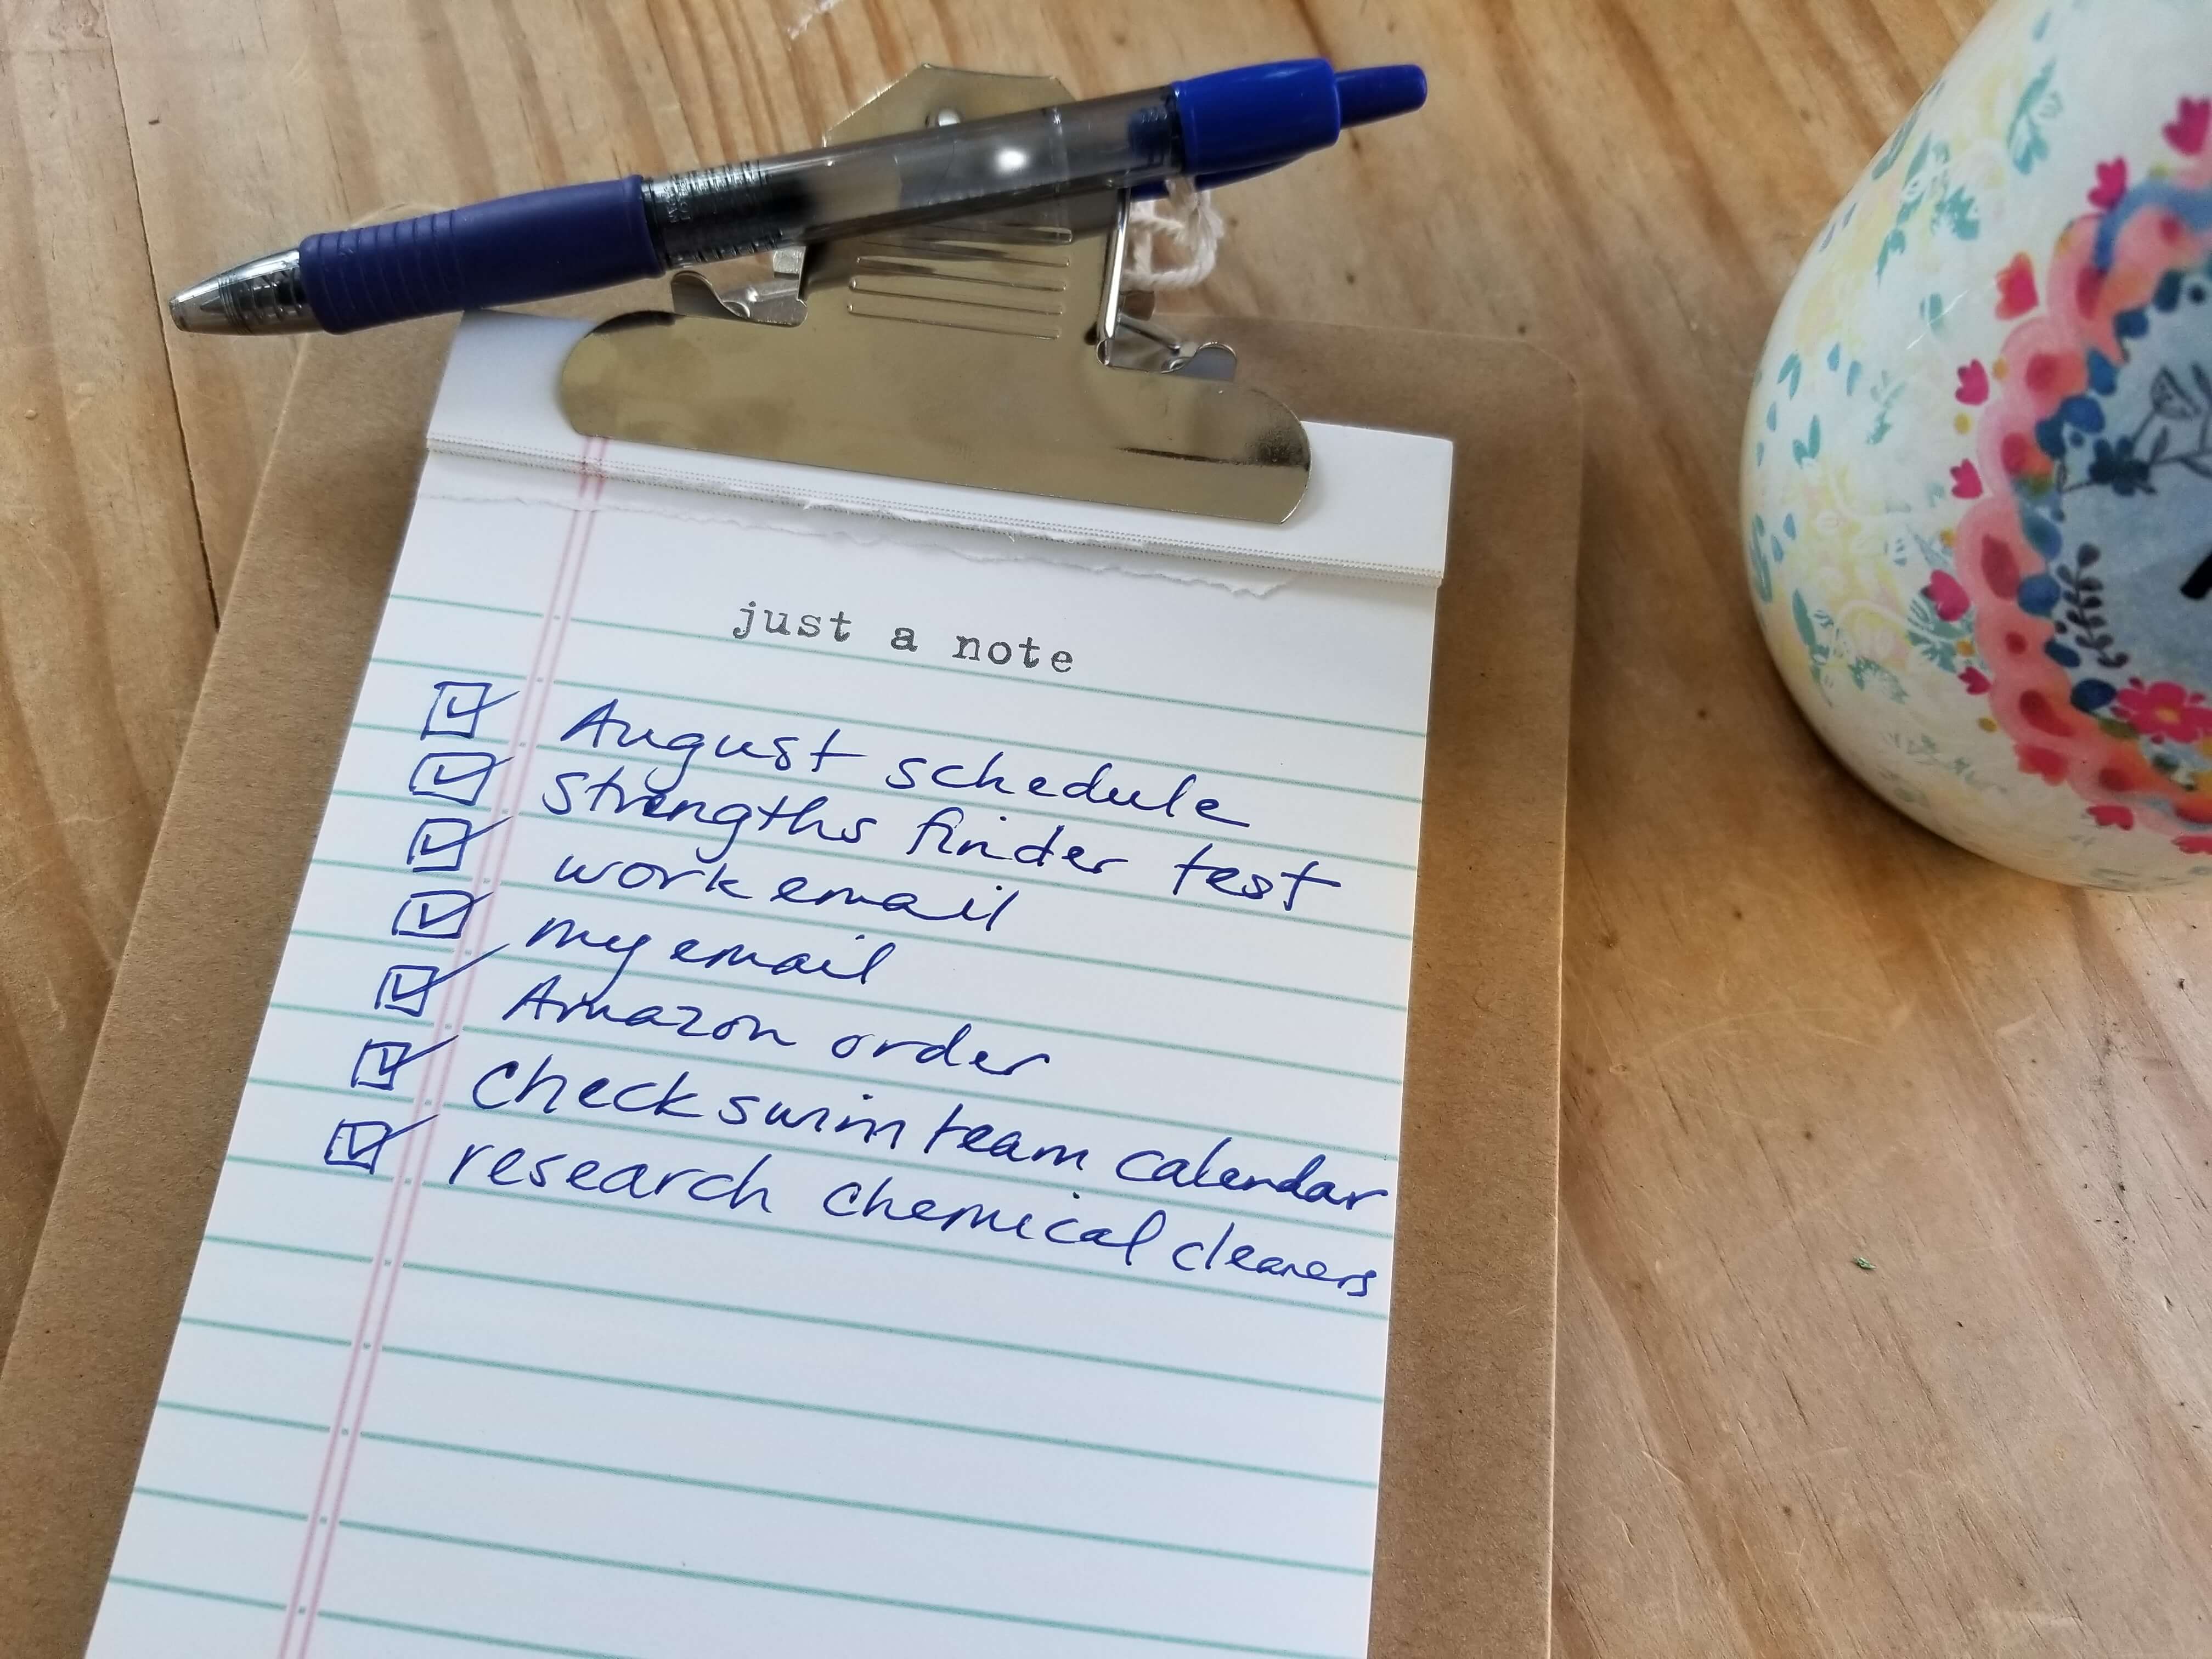 just a note
August schedule
strengths finder test
work email
my email
Amazon order
check swim team calendar
research chemical cleaners